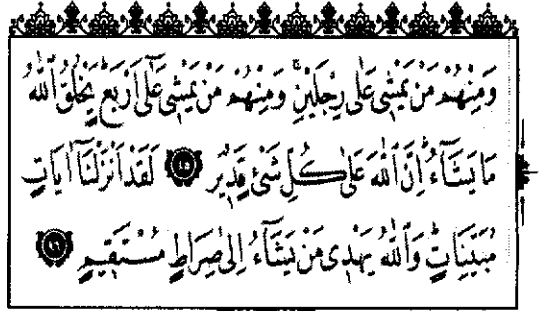 وَمِنْهُمْ مَنْ يَمْشِي عَلٰى رِجْلَيْنِۚ وَمِنْهُمْ مَنْ يَمْشِي عَلٰٓى اَرْبَعٍۜ يَخْلُقُ اللّٰهُ
مَا يَشَٓاءُۜ اِنَّ اللّٰهَ عَلٰى كُلِّ شَيْءٍ قَد۪يرٌ ﴿٤٥﴾ لَقَدْ اَنْزَلْنَٓا اٰيَاتٍ
مُبَيِّنَاتٍۜ وَاللّٰهُ يَهْد۪ي مَنْ يَشَٓاءُ اِلٰى صِرَاطٍ مُسْتَق۪يمٍ ﴿٤٦﴾